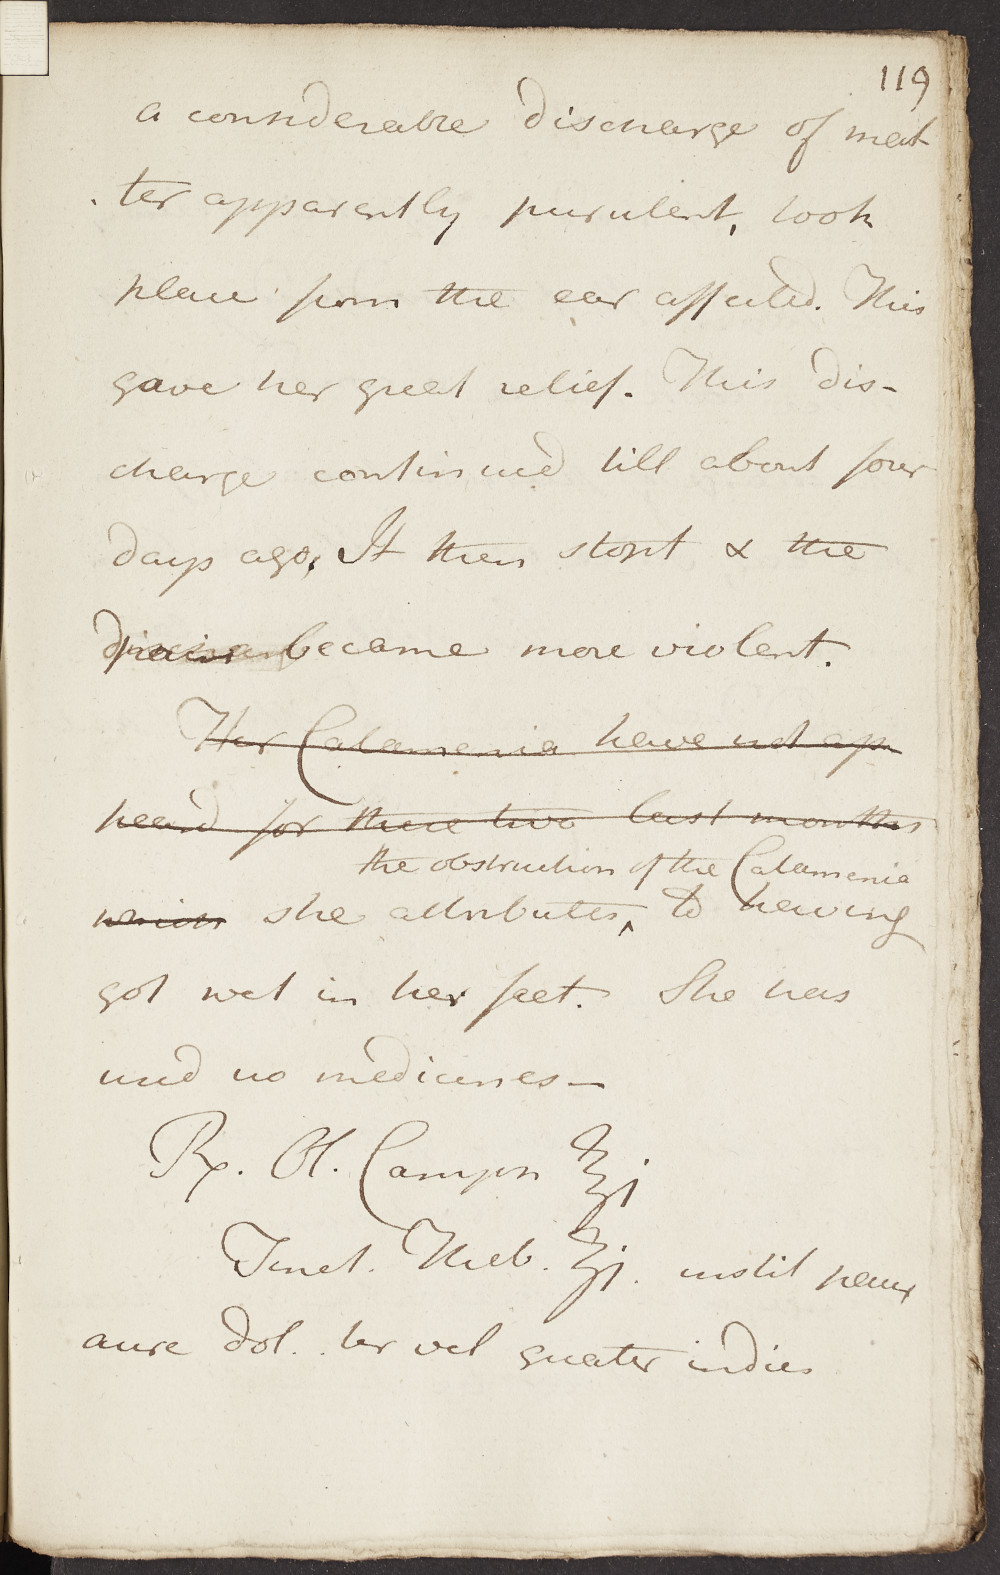 119
a considerable discharge of mat
ter apparently purulent, took
place from the ear affected. This
gave her great relief. This dis-
charge continued till about four
days ago, It then stopt & the
pain became more violent.
Her Catamenia have not ap
pear'd for these two last months
the obstruction of the Catamenia
which she attributes, to having
got wet in her feet. She has
used no medicines—
Rx. Ol. Camph ʒj
Tinct. Theb. ʒj. instil paux
aure dol. ter vel quater indies